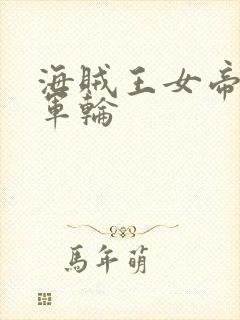 海賊王女帝
軍輪
馬年萌